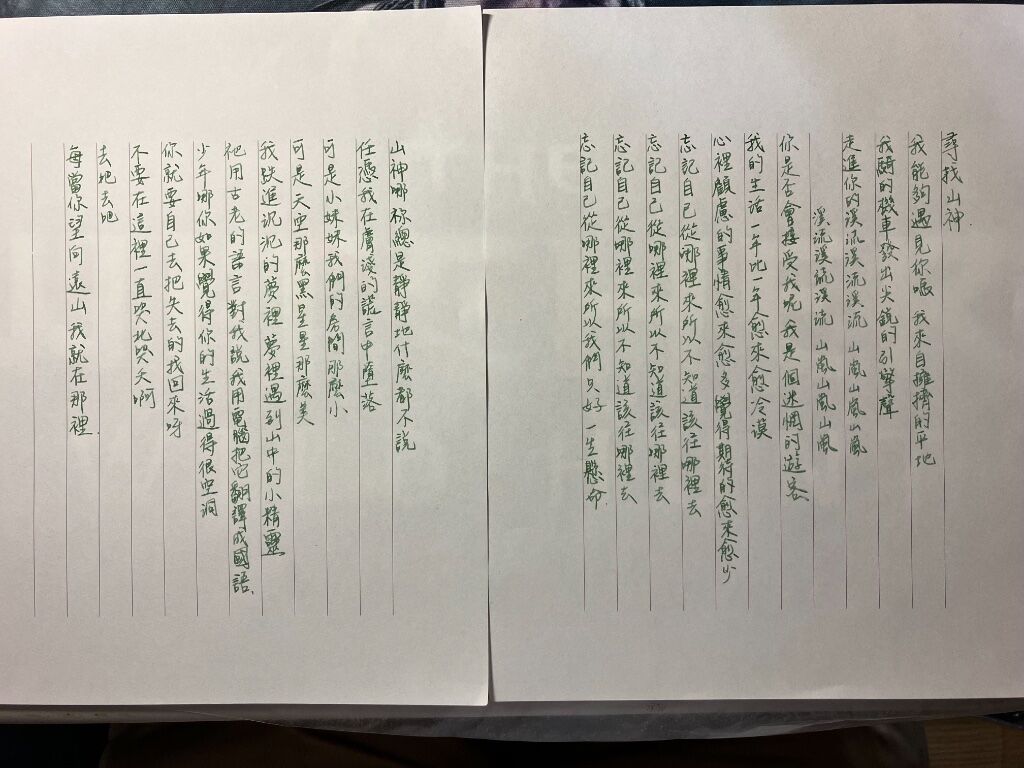 尋找山神
我能夠遇見你嗎 我來自擁擠的平地
我騎的機車發出尖銳的引擎聲
走進你的溪流溪流溪流 山嵐山嵐山嵐
溪流溪流溪流 山嵐山嵐山嵐
你是否會接受我呢 我是個迷惘的遊客
我的生活一年比一年愈來愈冷漠
心裡顧慮的事情愈來愈多 覺得期待的愈來愈少
忘記自己從哪裡來所以不知道該往哪裡去
忘記自己從哪裡來所以不知道該往哪裡去
忘記自己從哪裡來所以不知道該往哪裡去
忘記自己從哪裡來所以我們只好一生懸命
山神哪祢總是靜靜地什麼都不說
任憑我在膚淺的謊言中墮落
可是小妹妹我們的房間那麼小
可是天空那麼黑星星那麼美
我跌進沉沉的夢裡 夢裡遇到山中的小精靈
祂用古老的語言對我說我用電腦把它翻譯成國語
少年哪你如果覺得你的生活過得很空洞
你就要自己去把失去的找回來呀
不要在這裡一直哭北哭夭啊
去吧去吧
每當你望向遠山我就在那裡